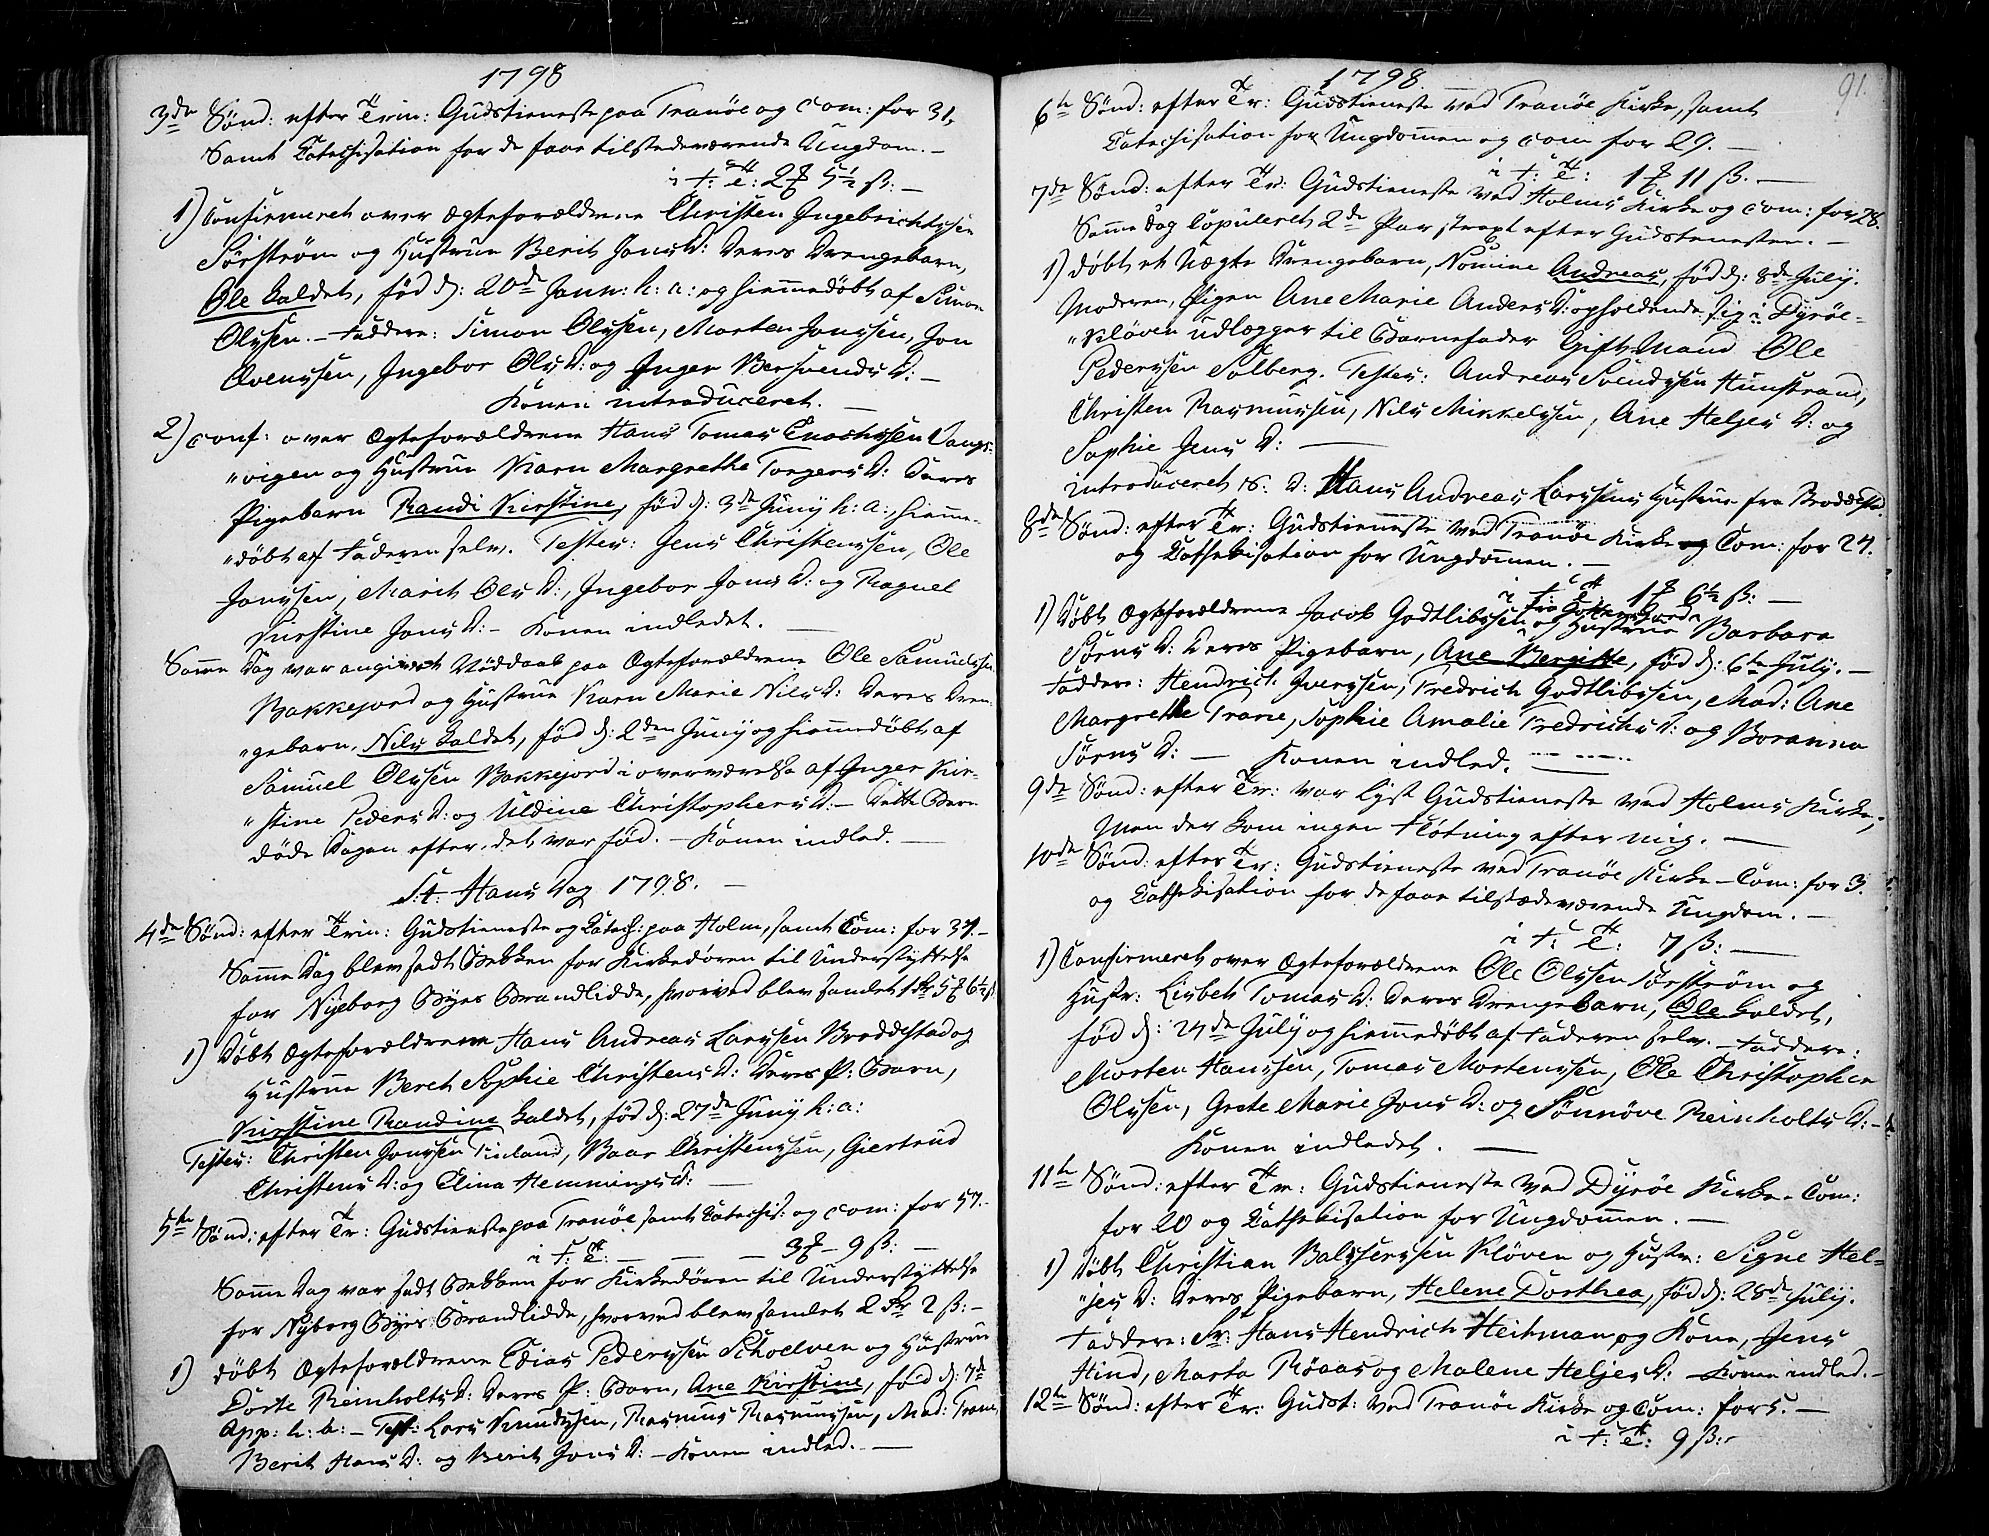 1798
3de Sønd: efter Trin: Gudstieneste paa Tranöe og Com: for 31,
Samt Catechisation for de faae tilstedeværende Ungdom. -
i F: T: 2 5½ ß: -
1) Confirmeret over Ægteforældrene Christen Ingebrichtsen
Sörström og Hustrue Berit Jons D: Deres Drengebarn,
Ole kaldet, föd d: 20de Jann: h: a: og hiemmedöbt af Simon
Olsen. - Faddere: Simon Olssen, Morten Jonssen, Jon
Evenssen, Ingebor Ols D: og Inger Bersvends D: -
Konen introduceret. -
2) Conf: over Ægteforældrene Hans Tomas Enochssen Vangs-
"vigen og Hustrue Karn Margrethe Torgers D: Deres
Pigebarn Randi Kirstine, föd d: 3de Juny h: a: hiemme-
"döbt af Faderen selv. Testes: Jens Christenssen, Ole
Jonssen, Marit Ols D:, Ingebor Jons D: og Ragnel
Kirstine Jons D: - Konen indledet. -
Samme Dag var angivet Nöddaab paa Ægteforældrene Ole Samuelssen
Bakkejord og Hustrue Karn Marie Nils D: Deres Dren-
"gebarn, Nils kaldet, föd d: 2den Juny og hiemmedöbt af
Samuel Olssen Bakkejord i overværelse af Inger Kir-
"stine Peders D: og Uldine Christophers D: - Dette Barn
döde Dagen efter det var föd. - Konen indled. -
St. Hans Dag 1798. -
4de Sönd: efter Trin: Gudstieneste og Catech: paa Holm, samt Com: for 37. -
Samme Dag blev sadt Bekken for Kirkedören til Understyttelse
for Nyeborg Byes Brandlidde, hvorved blev samlet 1 5 6½ ß
1) Döbt Ægteforældrene Hans Andreas Larssen Broddestad og
Hustrue Beret Sophie Christens D: Deres P: Barn,
Kirstine Randine kaldet, föd d: 27de Juny h: a:
Testes: Christen Jonssen Finland, Baar Christenssen, Giertrud
Christens D: og Elina Hemmings D: -
5te Sönd: efter Tr: Gudstieneste paa Tranöe samt Catechis: og Com: for 57. -
i F: T: - - - 3 - 9 ß: -
Samme Dag var sadt Bekken for Kirkedören til Understyttelse
for Nyborg Byes Brandlidde, hvorved blev samlet 2 2 ß: -
1) döbt Ægteforældrene Edias Pederssen Schoelven og Hustrue
Dorte Reinholts D: Deres P: Barn, Ane Kirstine, föd d: 7de
App: h: a: - Test: Lars Knudssen, Rasmus Rasmussen, Mad: Trane,
Berit Hans D: og Berit Jons D: - Konen indled. -
1798. 91.
6te Sönd: efter Tr: Gudstieneste ved Tranöe Kirke, samt
Catechisation for Ungdommen og Com for 29. -
i F: T: 1 11 ß. -
7de Sönd: efter Tr: Gudstieneste ved Holms Kirke og Com: for 28.
Samme Dag Copuleret 2de Par strax efter Gudstenesten. -
1) döbt et Uægte Drengebarn, Nomine Andreas, föd d: 8de July.
Moderen, Pigen Ane Marie Anders D: opholdende sig i Dyröe-
"klöven udlægger til Barnefader Gift Mand Ole
Pederssen Solberg. Testes: Andreas Svendssen Hunstrand,
Christen Rasmussen, Nils Mikkelssen, Ane Heljes D: og
Sophie Jens D: -
introduceret s: D: Hans Andreas Larssens Hustrue fra Broddestad.
8de Sönd: efter Tr: Gudstieneste ved Tranöe Kirke og Com: for 24.
og Cathekisation for Ungdommen. -
i F: T: 1 6½ ß: -
1) Döbt Ægteforældrene Jacob Godtlibssen fra og Hustrue Barbara
Sörns D: Deres Pigebarn, Ane Bergitte, föd d: 6te July. -
Faddere: Hendrich Iverssen, Fredrich Godtlibssen, Mad: Ane
Margrethe Trane, Sophie Amalie Fredrichs D: og Boranna
Sörns D: - Konen indled. -
9de Sönd: efter Tr: var lyst Gudstieneste ved Holms Kirke,
Men der kom ingen Flötning efter mig. -
10de Sönd: efter Tr: Gudstieneste ved Tranöe Kirke - Com: for 3.
og Cathekisation for de faae tilstædeværende Ungdom. -
i F: T: 7 ß: -
1) Confirmeret over Ægteforældrene Ole Olssen Sörström og
Hustr: Lisbet Tomas D: Deres Drengebarn, Ole kaldet,
föd d: 24de July og hiemmedöbt af Faderen selv. - Faddere:
Morten Hanssen, Tomas Mortenssen, Ole Christopher
Olssen, Grete Marie Jons D: og Sönnöve Reinholts D: -
Konen indledet. -
11te Sönd: efter Tr: Gudstieneste ved Dyröe Kirke - Com:
for 20 og Cathekisation for Ungdommen. -
1) Döbt Christian Balsserssen Klöven og Hustr: Signe Hel-
"jes D: Deres Pigebarn, Helene Dorthea, föd d: 28de July.
Faddere: Sr: Hans Hendrich Heitman og Kone, Jens
Hind, Marta Röaas og Malene Heljes D: - Konen indled. -
12te Sönd: efter Tr: Gudst: ved Tranöe Kirke og Com: for 5. -
i F: T: 9 ß: -